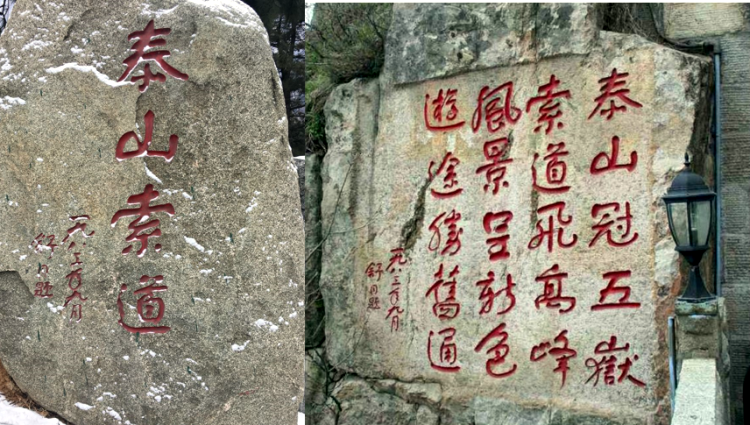 泰山索道
一九八三年九月
舒同题
泰山冠五嶽
索道飛高峰
風景呈新色
遊途勝舊通
一九八三年九月
舒同题